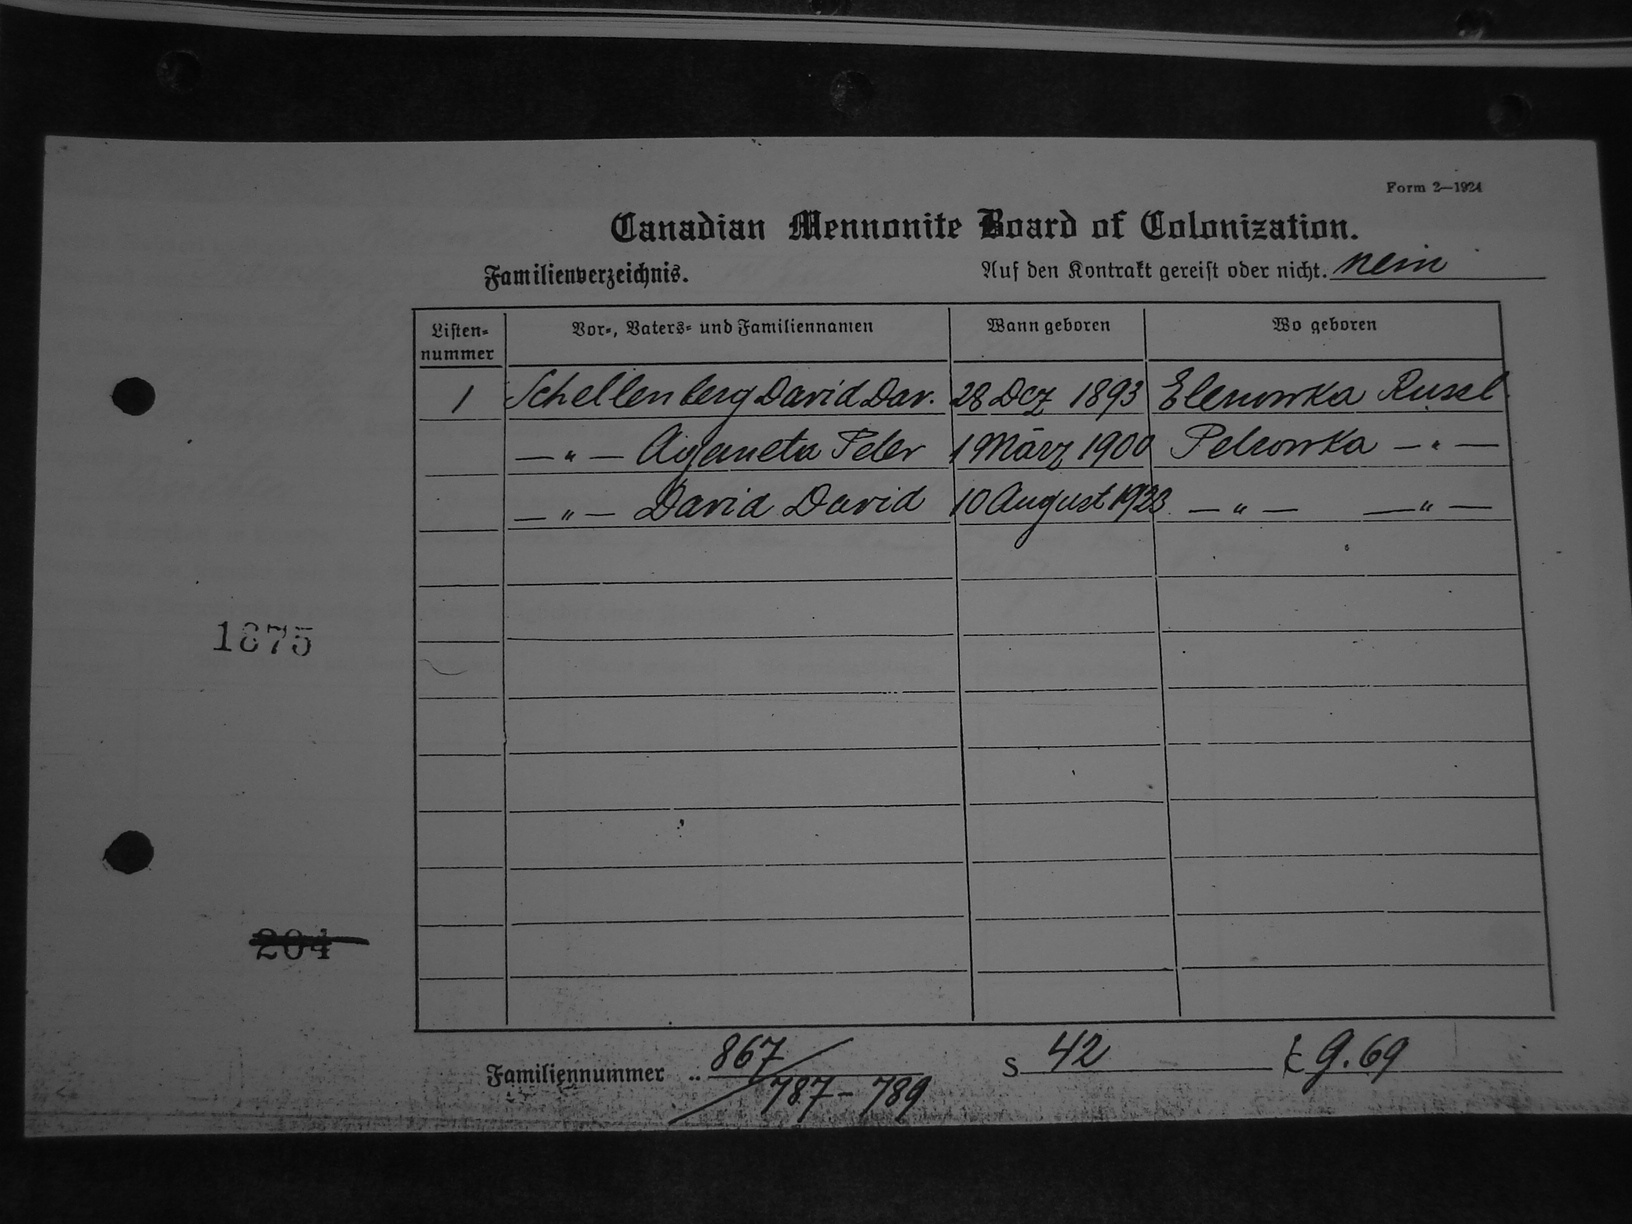 Form 2—1924
Canadian Mennonite Board of Colonization.
Familienverzeichnis. Auf den Kontrakt gereist oder nicht. nein
Listen-nummer Vor-, Vaters- und Familiennamen Wann geboren Wo geboren
1 Schellenberg David Dav. 28 Dez 1893 Elenowka Russl.
— " — Aganeta Peter 1 März 1900 Petrowka — " —
— " — David David 10 August 1923 — " — — " —
1875
204
Familiennummer 867 S 42 C 9.69
787 - 789